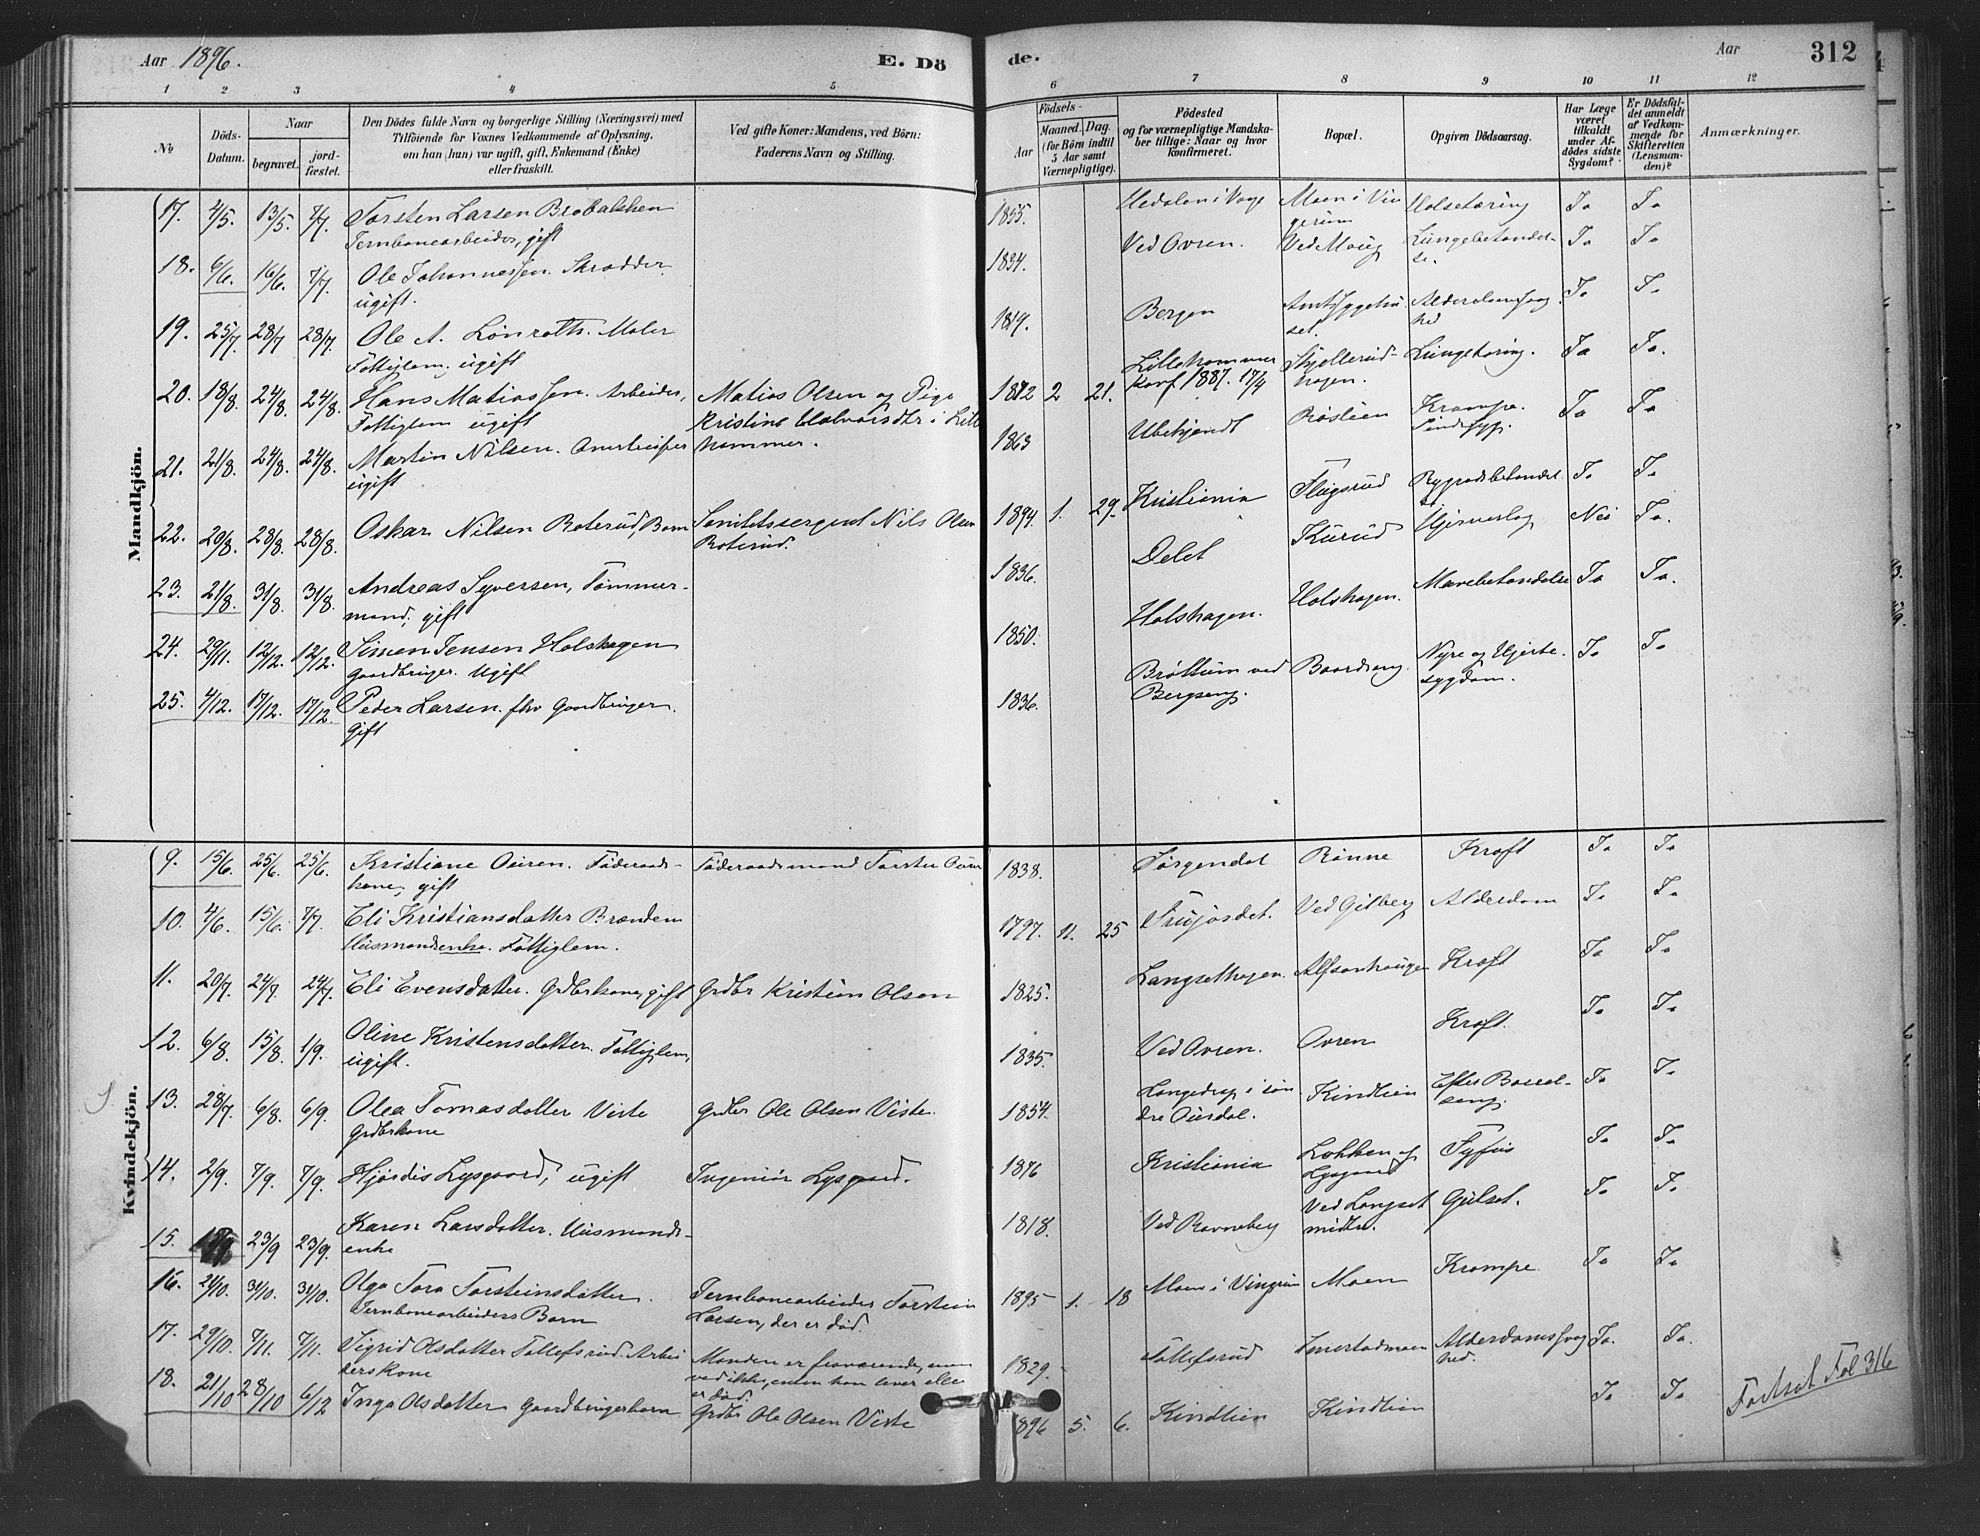 Aar 1896.
E. Dö
de.
Aar
312
1 2 3 4 5 6 7 8 9 10 11 12
No
Döds-Datum.
Naar
begravet.
jord-fæstet.
Den Dödes fulde Navn og borgerlige Stilling (Næringsvei) med
Tilföiende for Voxnes Vedkommende af Oplysning,
om han (hun) var ugift, gift, Enkemand (Enke)
eller fraskilt.
Ved gifte Koner: Mandens, ved Börn:
Faderens Navn og Stilling.
Födsels-
Aar
Maaned. Dag.
(for Börn indtil
5 Aar samt
Værnepligtige).
Födested
og for værnepligtige Mandska-
ber tillige: Naar og hvor
konfirmeret.
Bopæl.
Opgiven Dödsaarsag.
Har Læge
været
tilkaldt
under Af-
dödes sidste
Sygdom?
Er Dödsfal-
det anmeldt
af Vedkom-
mende for
Skifteretten
(Lensman-
den)?
Anmærkninger.
Mandkjön.
17. 4/5. 13/5. 7/7. Torsten Larsen 1855. Hedalen i Vage Moen i Vin Ja Ja
Jernbanearbeider, gift gerum
18. 6/6. 16/6. 7/7. Ole Johannessen. Skrædder 1834. Ved Ovren. Ved Ja Ja
ugift.
19. 25/7. 28/7 28/7. Ole A. Lönroth. Maler 1819. Bergen Alderdomssvag Ja Ja
Fattiglem, ugift hed
20. 18/8. 24/8. 24/8. Hans Matiassen. Arbeider, Matias Olsen og Pige 1872 2 21. Lillehammer Lungetæring. Ja Ja.
Fattiglem ugift Kristine Halvorsdtr i Lille Konf. 1887. 17/4
21. 21/8. 24/8. 24/8. Martin Nilsen. hammer. 1863 Ubekjendt Röslien Krampe. Ja Ja
ugift Sindssyg.
22. 20/8. 28/8. 28/8. Oskar Nilsen Roterud, Barn Nils Olsen 1894. 1. 29. Kristiania Flugsrud Ja Ja
Roterud.
23. 21/8. 31/8. 31/8. Andreas Syversen, Tömmer- 1836. Delet Kurud Hjerneslag Nei Ja.
mand, gift
24. 29/11. 12/12. 12/12. Simen Jensen Holshagen 1850. Holshagen. Holshagen. Mavebetændelse Ja Ja.
Gaardbruger. Ugift
25. 4/12. 17/12. 17/12. Peder Larsen. fhv Gaardbruger. 1836. Bröttum ved Baardseng. Nyre og Hjerte- Ja Ja
Gift Bergseng. sygdom.
Kvindekjön.
9. 15/6. 25/6. 25/6. Kristiane Ouren. Föderaads- Föderaadsmand Torsten Ouren 1838. Rönne Kræft Ja Ja
kone, gift
10. 4/6. 15/6. 7/7. Eli Kristiansdatter Brænden 1797. 11. 25 Ved Gilberg Alderdom Ja Ja
Husmandsenke. Fattiglem.
11. 20/7. 24/7. 24/7. Eli Evensdatter. Grdbrkone, gift Grdbr Kristian Olsen 1825. Langsethagen. Alfsenhaugen Kræft Ja Ja
12. 6/8. 15/8. 1/9. Oline Kristensdatter. Fattiglem, 1835. Ved Ovren. Ovren Kræft. Ja Ja
ugift.
13. 28/7. 6/8. 6/9. Olea Tomasdatter Viste Grdbr Ole Olsen Viste. 1854. i sön Kindlien Efter Barsel- Ja Ja
Grdbrkone dre Ourdal. seng.
14. 2/9. 7/9. 7/9. Hjördis Lysgaard, ugift Ingeniör Lysgaard. 1876 Kristiania Lökken og Tyfus Ja Ja
Lysgaard
15. 23/9 23/9. Karen Larsdatter. Husmands- 1818. Ved Ravneberg Ved Langset Gulsot. Ja Ja
enke midtre.
16. 24/10. 31/10. 31/10. Olga Tora Torsteinsdatter. Jernbanearbeider Torstein 1895 1. 18 Moen i Vingrum Moen Krampe. Ja Ja
Jernbanearbeiders Barn Larsen, der er död.
17. 29/10. 7/11. 7/11. Sigrid Olsdatter Tollefsrud. Arbei Manden er fraværende, man 1829. Tollefsrud Smestadmoen Alderdomssvag Ja. Ja.
derskone ved ikke, enten han lever eller hed.
er död
18. 21/10 28/10 6/12 Inga Olsdatter Gaardbrugerbarn Grdbr Ole Olsen Viste 1896 5. 6. Kindlien Kindlien Ja Ja Fortsat Fol 316